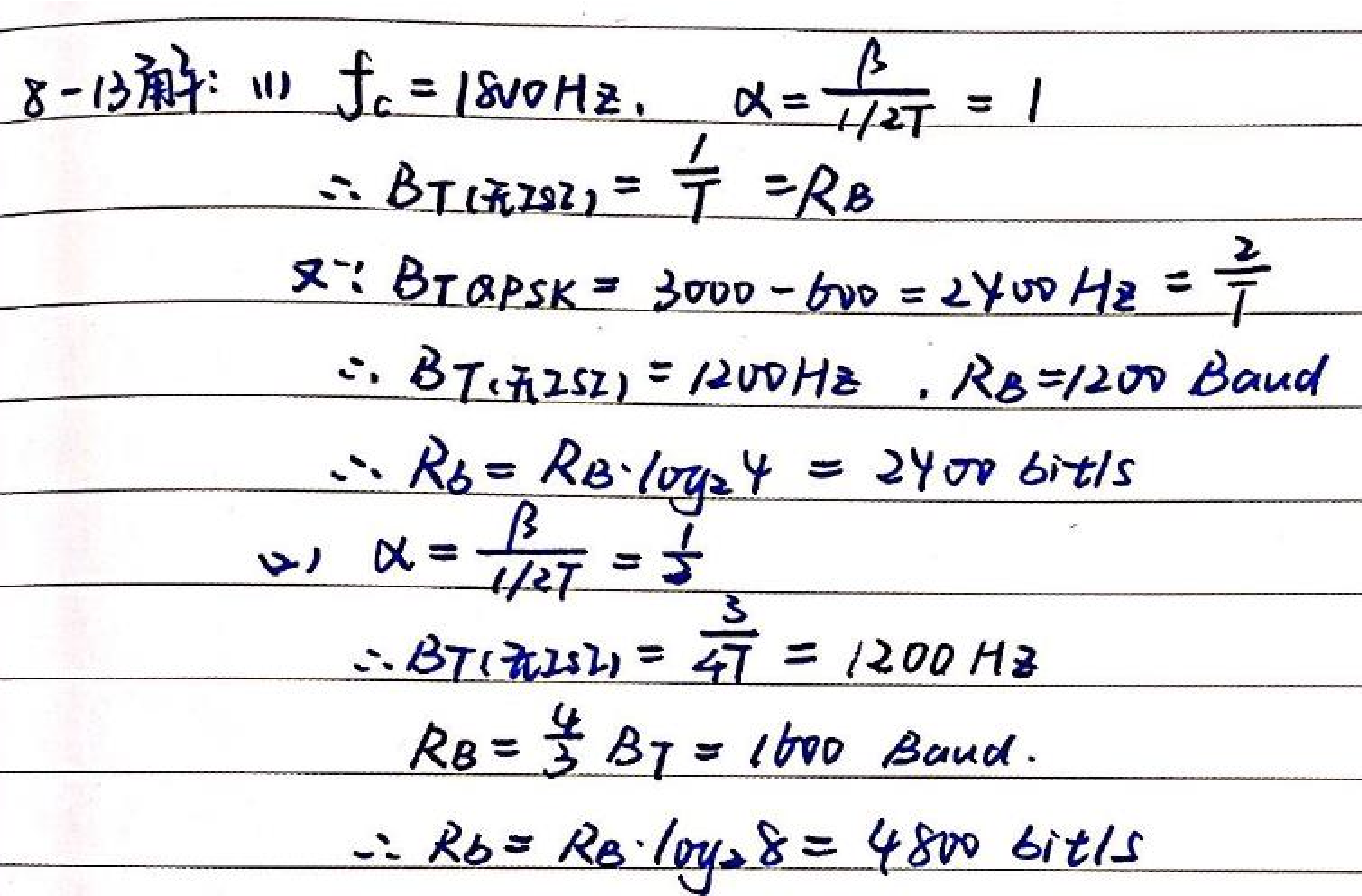 8-13解: (1) fc = 1800Hz, α = β/(1/2T) = 1
∴ BT(无ISI) = 1/T = RB
又∵ BTQPSK = 3000-600 = 2400 Hz = 2/T
∴ BT(无ISI) = 1200Hz , RB=1200 Baud
∴ Rb = RB·log₂4 = 2400 bit/s
(2) α = β/(1/2T) = 1/2
∴ BT(无ISI) = 3/4T = 1200 Hz
RB = 4/3 BT = 1600 Baud.
∴ Rb = RB·log₂8 = 4800 bit/s